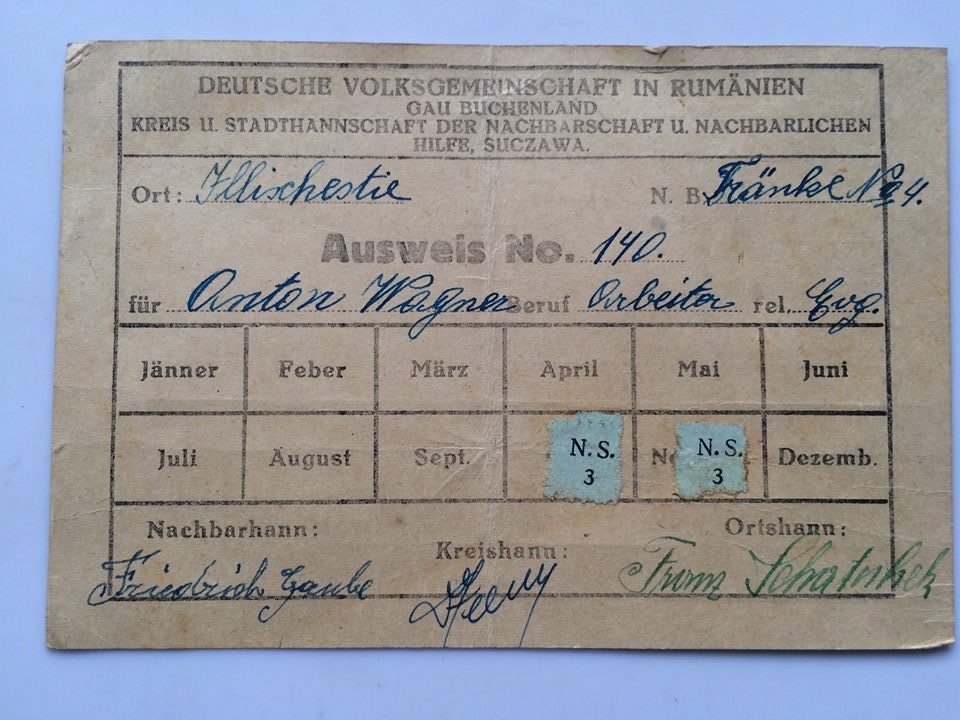 DEUTSCHE VOLKSGEMEINSCHAFT IN RUMÄNIEN
GAU BUCHENLAND
KREIS U. STADTHANNSCHAFT DER NACHBARSCHAFT U. NACHBARLICHEN
HILFE, SUCZAWA.
Ort: Illischestie N. B. Fränkl No 4.
Ausweis No. 140.
für Anton Wagner Beruf Arbeiter rel. Evg.
Jänner Feber März April Mai Juni
Juli August Sept. N. S. 3 N. S. 3 Dezemb.
Nachbarhann: Kreishann: Ortshann:
Friedrich Franz